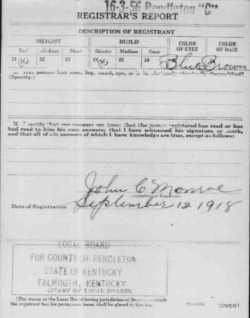 16-3-56 Pendleton "C"
REGISTRAR'S REPORT
DESCRIPTION OF REGISTRANT
HEIGHT BUILD COLOR OF EYES COLOR OF HAIR
Tall Medium Short Slender Medium Stout
Blue Brown
person lost arm, leg, hand, eye,
(Specify.)
30. I certify that my answers are true; that the person registered has read or has
had read to him his own answers; that I have witnessed his signature or mark,
and that all of his answers of which I have knowledge are true, except as follows:
John C Monroe
Date of Registration September 12 1918
LOCAL BOARD
FOR COUNTY OF PENDLETON
STATE OF KENTUCKY
FALMOUTH, KENTUCKY
(STAMP OF LOCAL BOARD)
(The stamp of the Local Board having jurisdiction of the area in which
the registrant has his permanent home shall be placed in this box.)